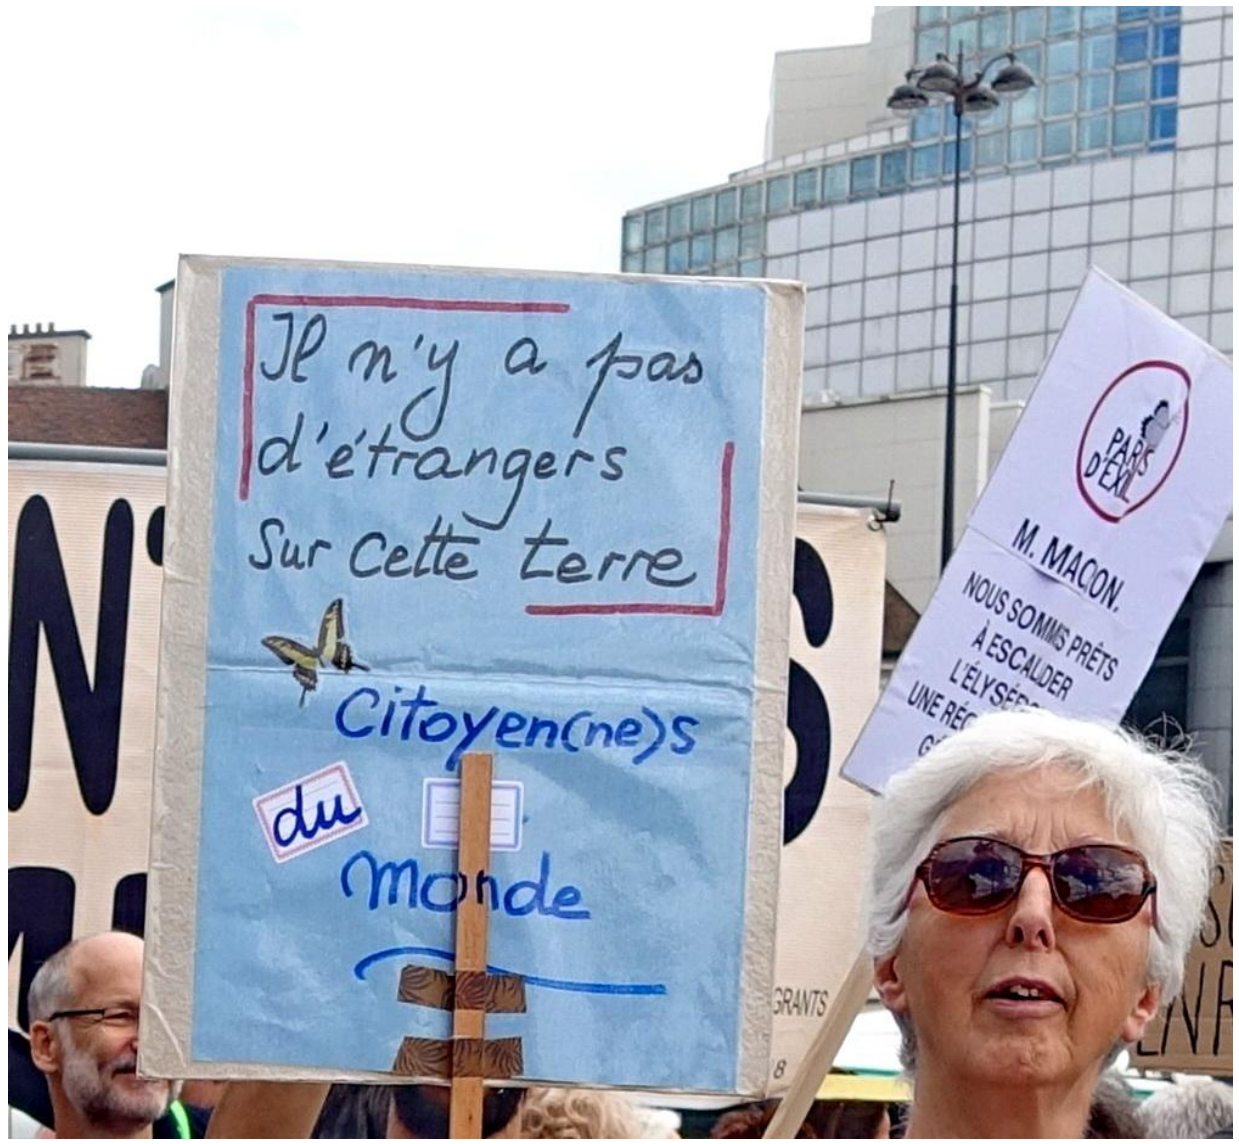 Il n'y a pas
d'étrangers
Sur cette terre
Citoyen(ne)s
du
Monde
PARIS
D'EXIL
M. MACON.
NOUS SOMMS PRÊTS
À ESCALIDER
UNE
GRANTS
8